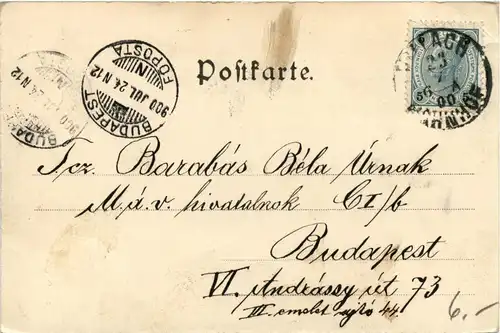 Postkarte.
BUDAPEST
900 JUL. 24 N 12
FŐPOSTA
BUDA
900
24 N 12
23
7
00
BAHNHOF
Tcz. Barabás Béla Úrnak
M. á. v. hivatalnok CI/b
Budapest
VI. Andrássy út 73
III. emelet ajtó 44.
6.-